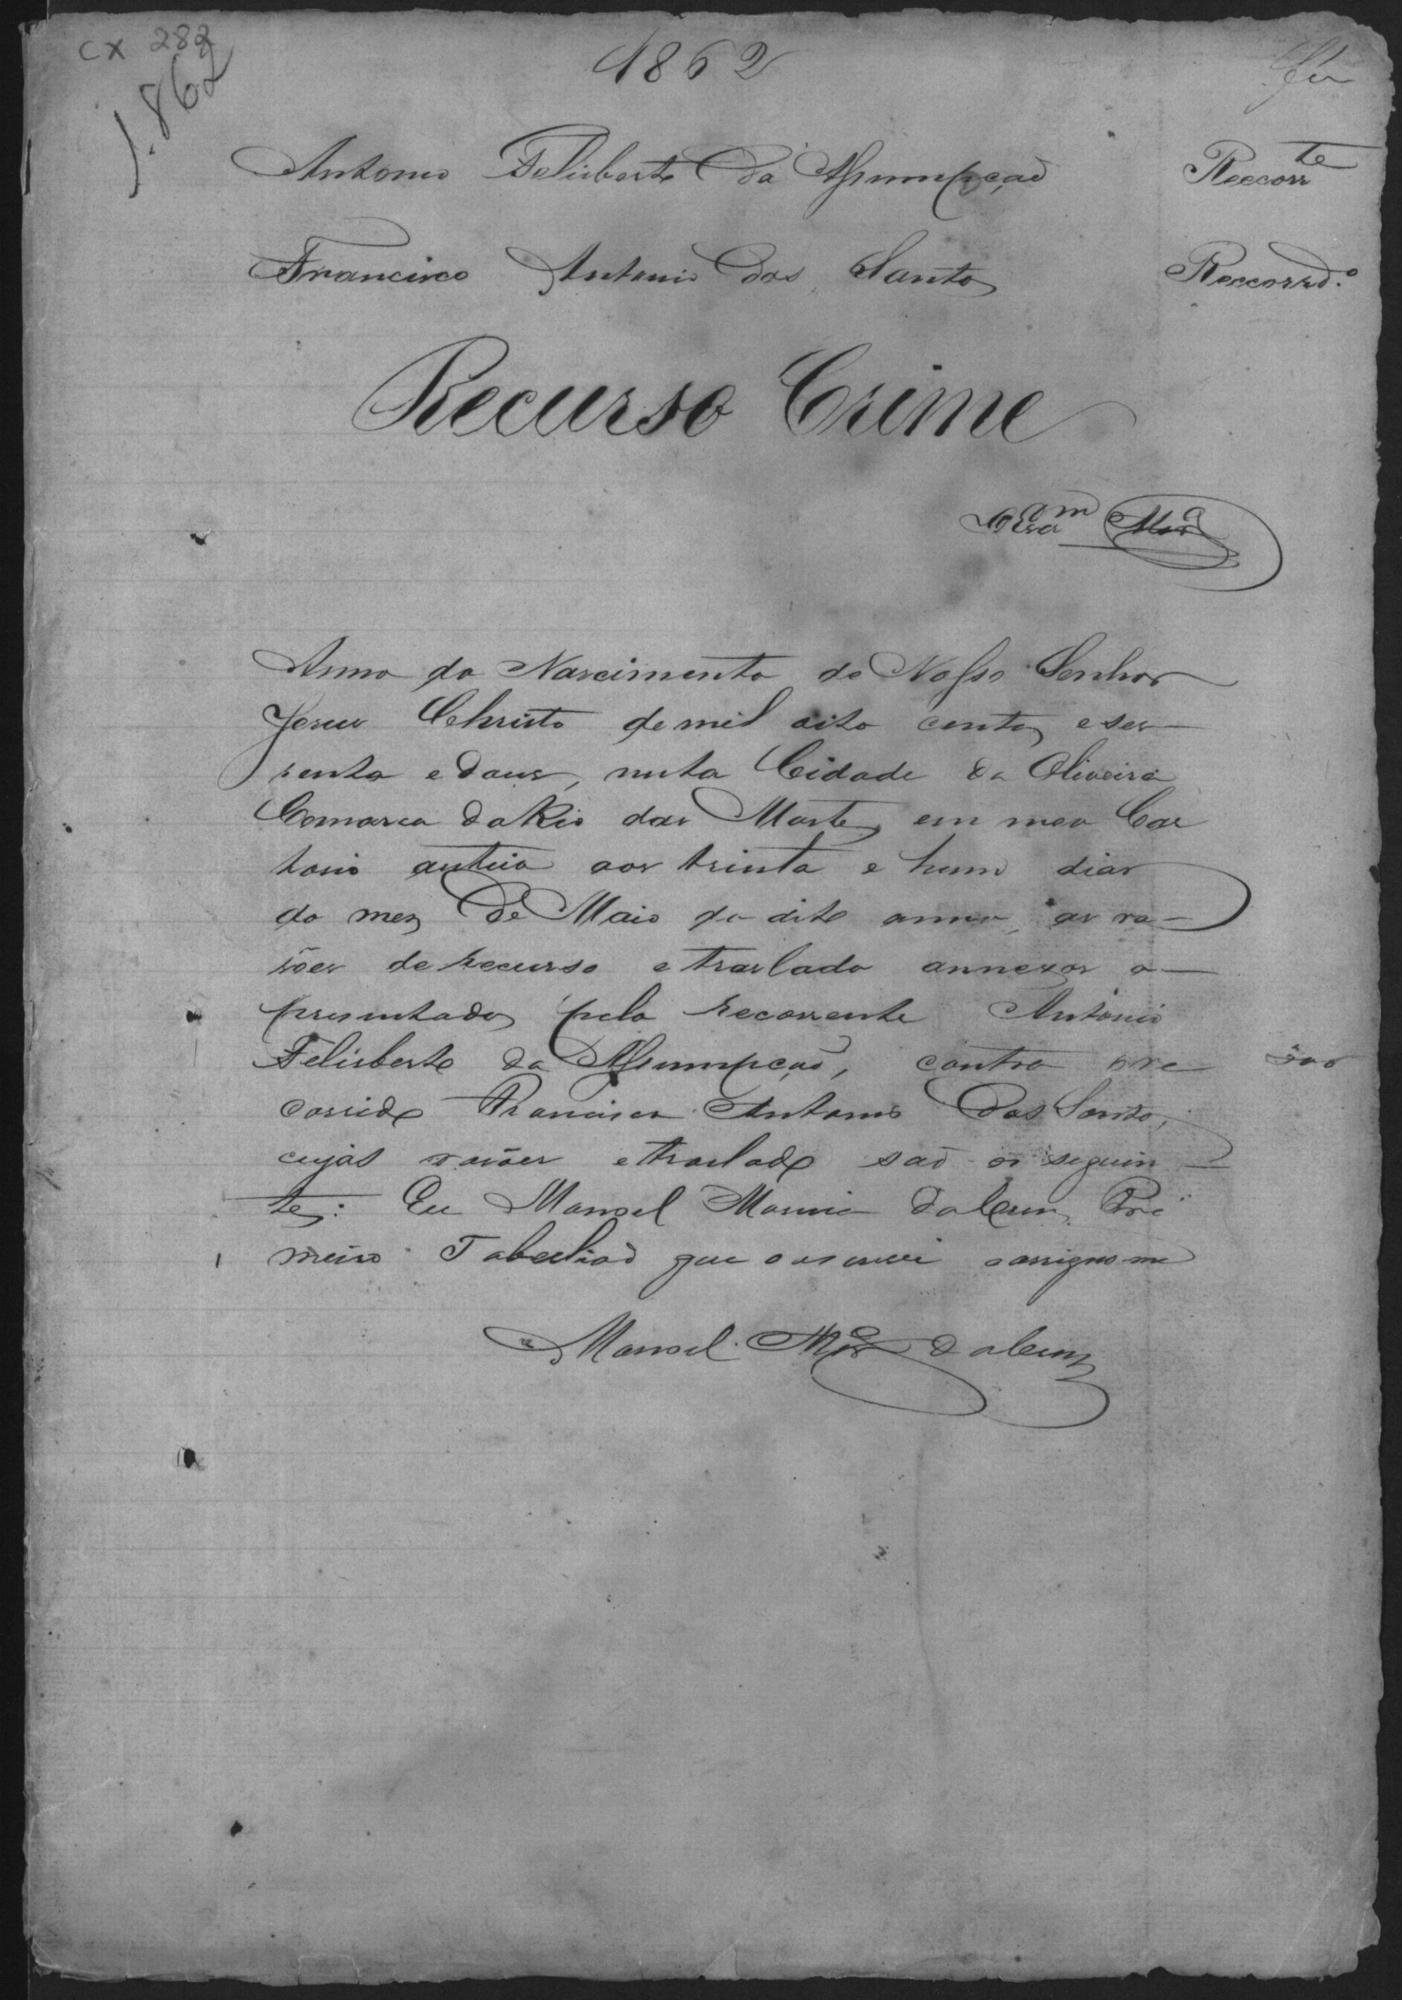 CX 282
1.862
1862
Antonio Felisberto da Assumpção Reccorrte
Francisco Antonio dos Santos Reccorrdo.
Recurso Crime
Anno do Nascimento de Nosso Senhor
Jesus Christo de mil oito centos e ses-
senta e dous, nesta Cidade da Oliveira
Comarca do Rio das Mortes em meu Car
torio autuo aos trinta e hum dias
do mez de Maio do dito anno, as ra-
sões de recurso e traslado annexos a-
presentados pelo recorrente Antonio
Felisberto da Assumpção, contra o re-
corrido Francisco Antonio dos Santos,
cujas rasões e traslado são os seguin-
tes: Eu Manoel Maria da Cunha Pri
meiro Tabelião que o escrevi e assigno me
Manoel Mra da Cunha